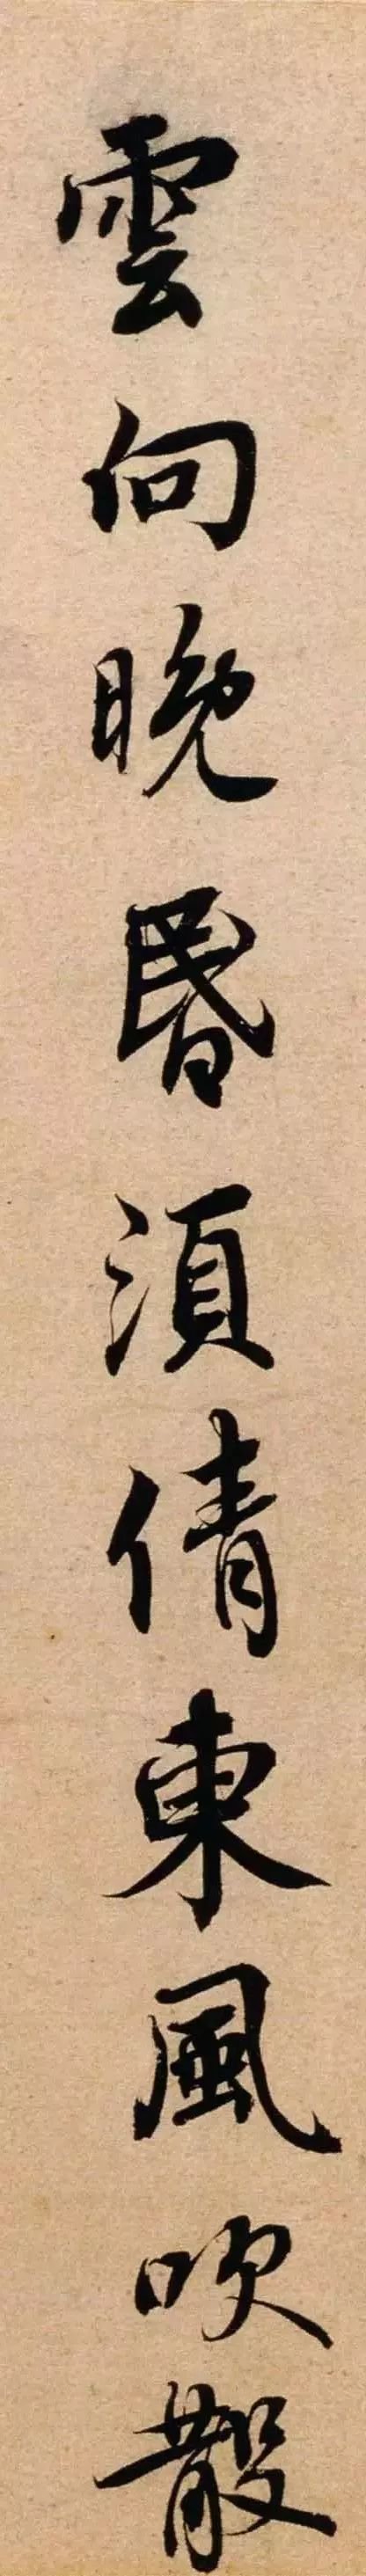 雲向晚昬須倩東風吹散